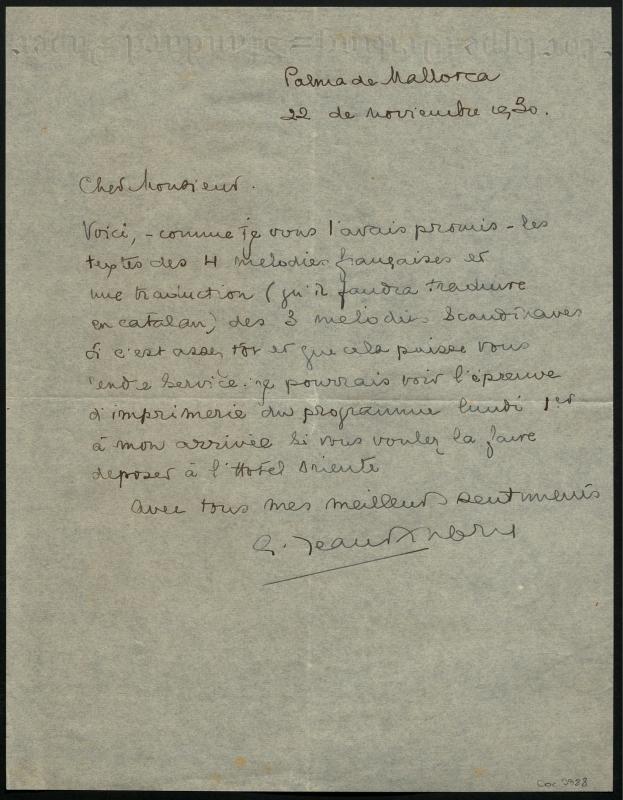 Palma de Mallorca
22 de noviembre 1930.
Cher Monsieur.
Voici, - comme je vous l'avais promis - les
textes des 4 mélodies françaises et
une traduction (qu'il faudra traduire
en catalan) des 3 mélodies Scandinaves
Si c'est assez tôt et que cela puisse vous
rendre service. je pourrais voir l'épreuve
d'imprimerie du programme lundi 1er
à mon arrivée si vous voulez la faire
deposer à l'Hotel Oriente
Avec tous mes meilleurs sentiments
G. Jean-Aubry